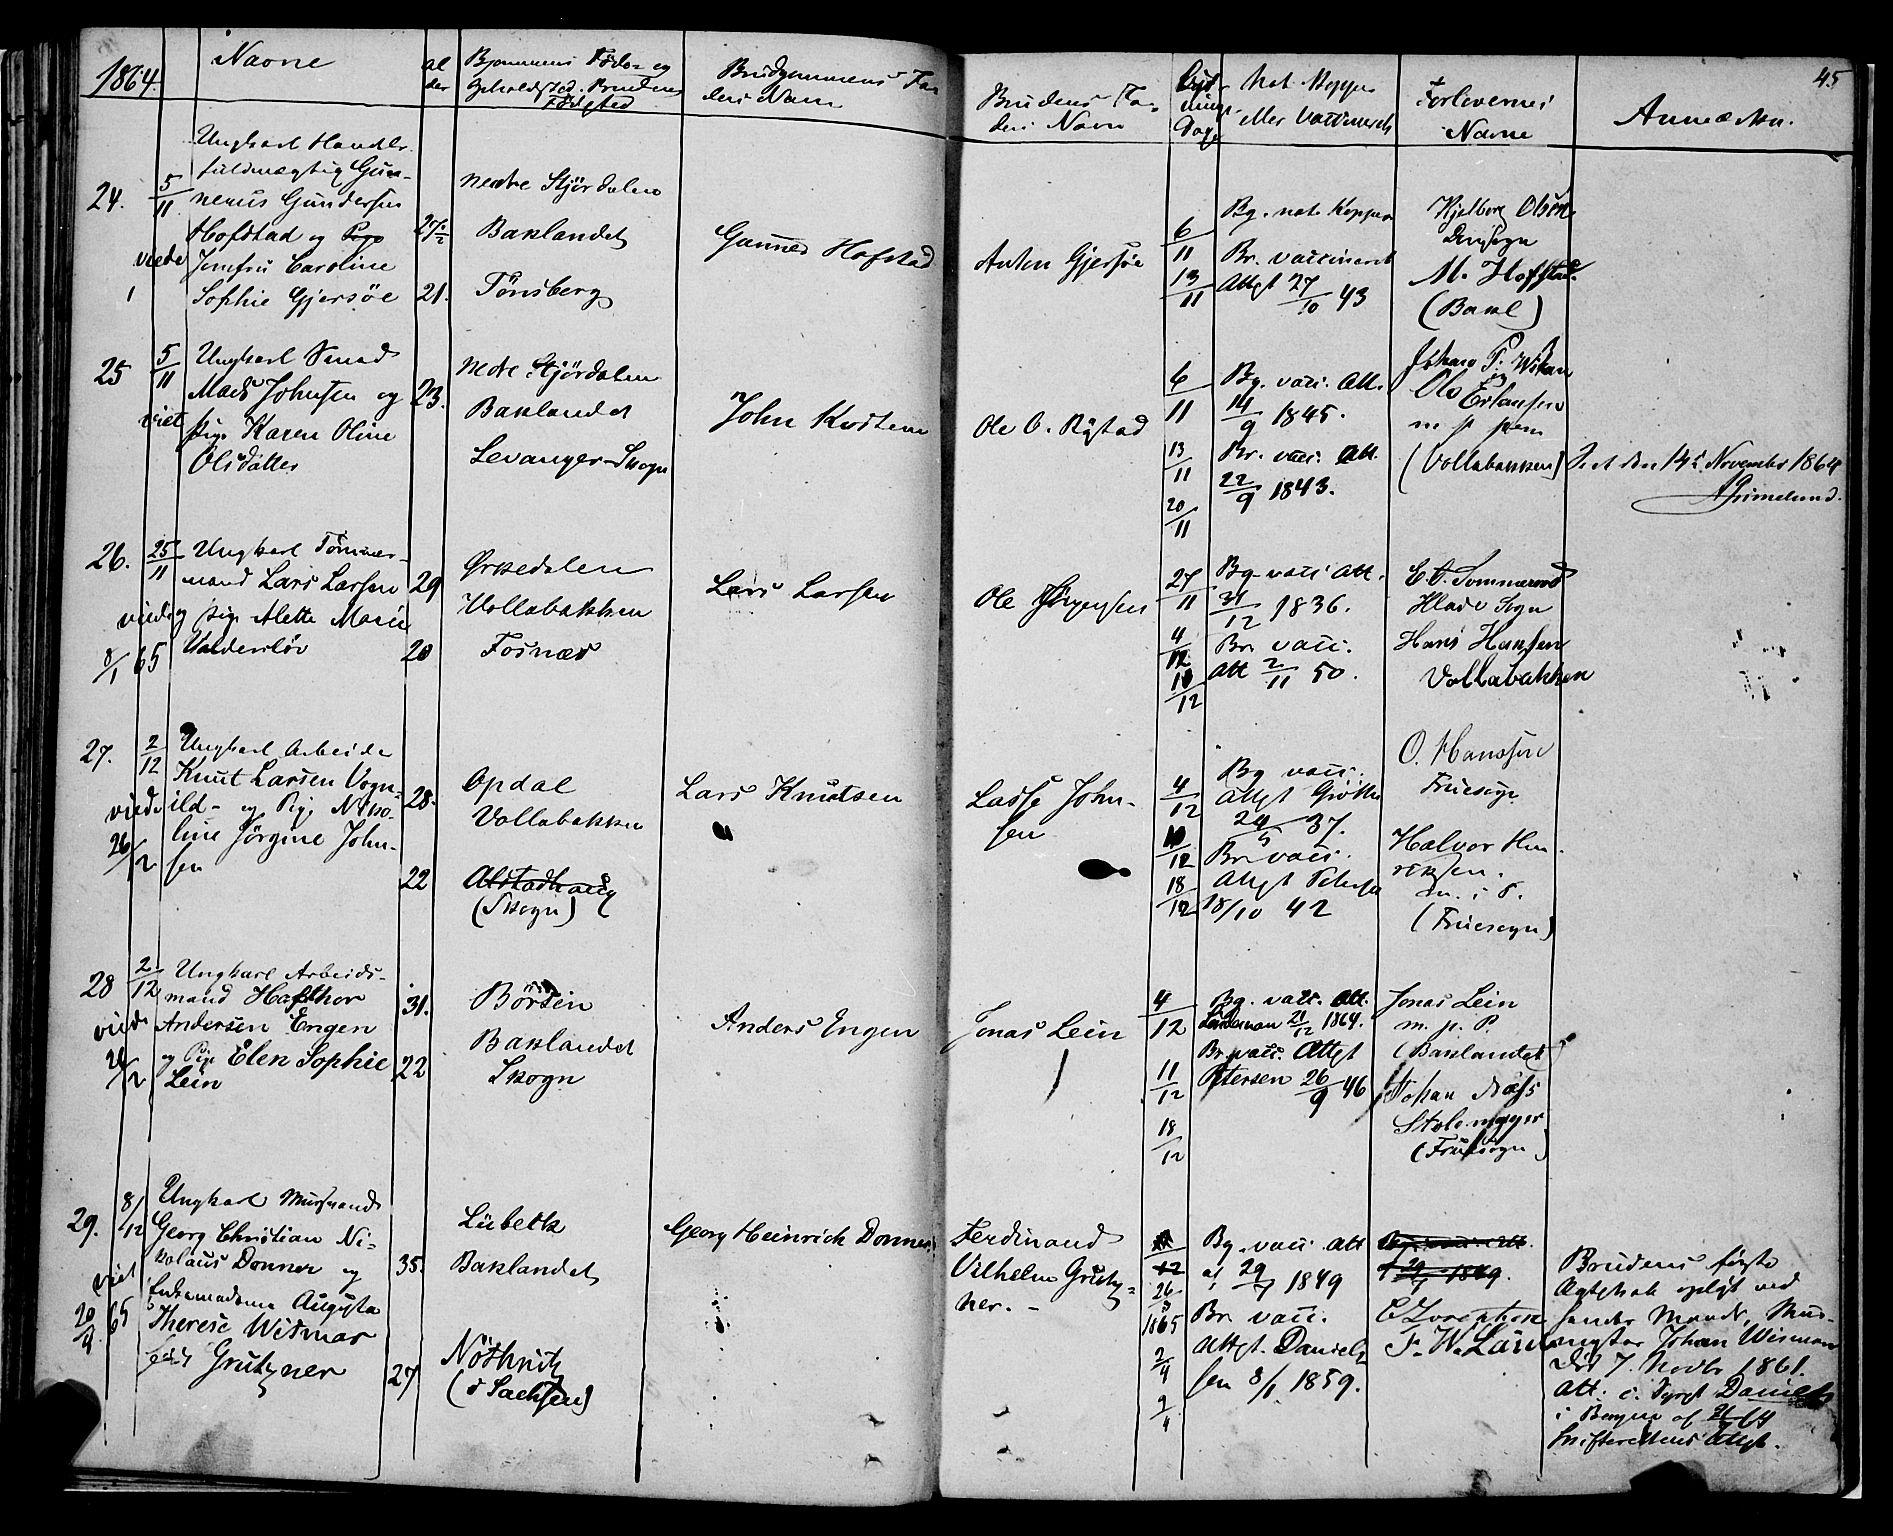 1864.
Navne
al
der
Brudgommens Føde- og
Opholdsted. Brudens
Fødested
Brudgommens Fa-
ders Navn
Brudens Fa-
ders Navn
Lys-
nings
Dage
Nat. Kopper
eller Vaccinerede
Forlovernes
Navne
Anmærkn.
45
24.
5/11
viede
1
Ungkarl Handls
fuldmægtig Gun-
nerius Gundersen
Hofstad og Pige
Jomfru Caroline
Sophie Gjersøe
27½
21.
nedre Stjørdalen
Baklandet
Tönsberg
Hofstad
Anton Gjersøe
6/11
13/11
Bg. nat. Kopper
Br. vaccineret
Attgt 27/10 43
Olsen
M. Hofstad.
(Bakl)
25
5/11
viet
Ungkarl Smed
Mads Johnsen og
Pige Karen Oline
Olsdatter
23.
nedre Stjördalen
Baklandet
Levanger-Skogn
John
Ole O. Rystad
6/11
13/11
20/11
Bg. vacc. Att.
14/9 1845.
Br. vacc. Att.
22/9 1843.
Johan P. Wikan
Ole Erlansen
m p pen
(Vollabakken)
den 14de November 1864
Grimelund.
26.
25/11
viede
8/1 65
Ungkarl Tømmer-
mand Lars Larsen
og Pige Alette Marie
29
20
Ørkedalen
Vollabakken
Fosnæs
Lars Larsen
Ole Jörgensen
27/11
4/12
11/12
Bg. vacc. Att.
31/12 1836.
Br. vacc.
Att 2/11 50.
Hlade Sogn
Hans Hansen
Vollabakken
27.
2/12
viede
26/12
Ungkarl Arbeider
Knut Larsen Vogn-
ild- og Pige Niko-
line Jörgine John-
sen
28.
22
Opdal
Vollabakken
Alstadhaug
(Skogn)
Lars Knutsen
Lasse John-
sen
4/12
11/12
18/12
Bg vacc.
Attgt
24/5 37.
Br. vacc.
Attgt Petersen
18/10 42
O. Hanssen
Fruesogn
Halvor Hen-
riksen.
m. i P.
(Fruesogn)
28
2/12
viede
26/12
Ungkarl Arbeids-
mand Hafthor
Andersen Engen
og Pige Elen Sophie
Lein
31.
22
Börsen
Baklandet
Skogn
Anders Engen
Jonas Lein
4/12
11/12
18/12
Bg. vacc. Att.
Lindeman 21/12 1864.
Br. vacc. Attgt
Petersen 26/9 46
Jonas Lein
m. p. P.
(Baklandet)
Johan Næss
Stolemager
(Fruesogn)
29.
8/12
viet
20/4 65
Ungkarl Mursvend
Georg Christian Ni-
kolaus Donner og
Enkemadame Augusta
Therese Wismar
född Grützner
35.
27
Lübeck
Baklandet
Nöthnitz
(i Sachsen)
Georg Heinrich Donner
Ferdinand
Vilhelm Grütz-
ner. -
11/12
26/3
1865
2/4
9/4
Bg. vacc Att
af 29/7 1849
Br. vacc.
Attgt. Daniel-
sen 8/1 1859.
F. W. Lau
Brudens første
Ægteskab opløst ved
hendes Mands, Mur-
mester Johan Wismar
Död 7. Novbr 1861.
Att. Danielsen
i Bergen af 21/ 64
Skifterettens Attgt.